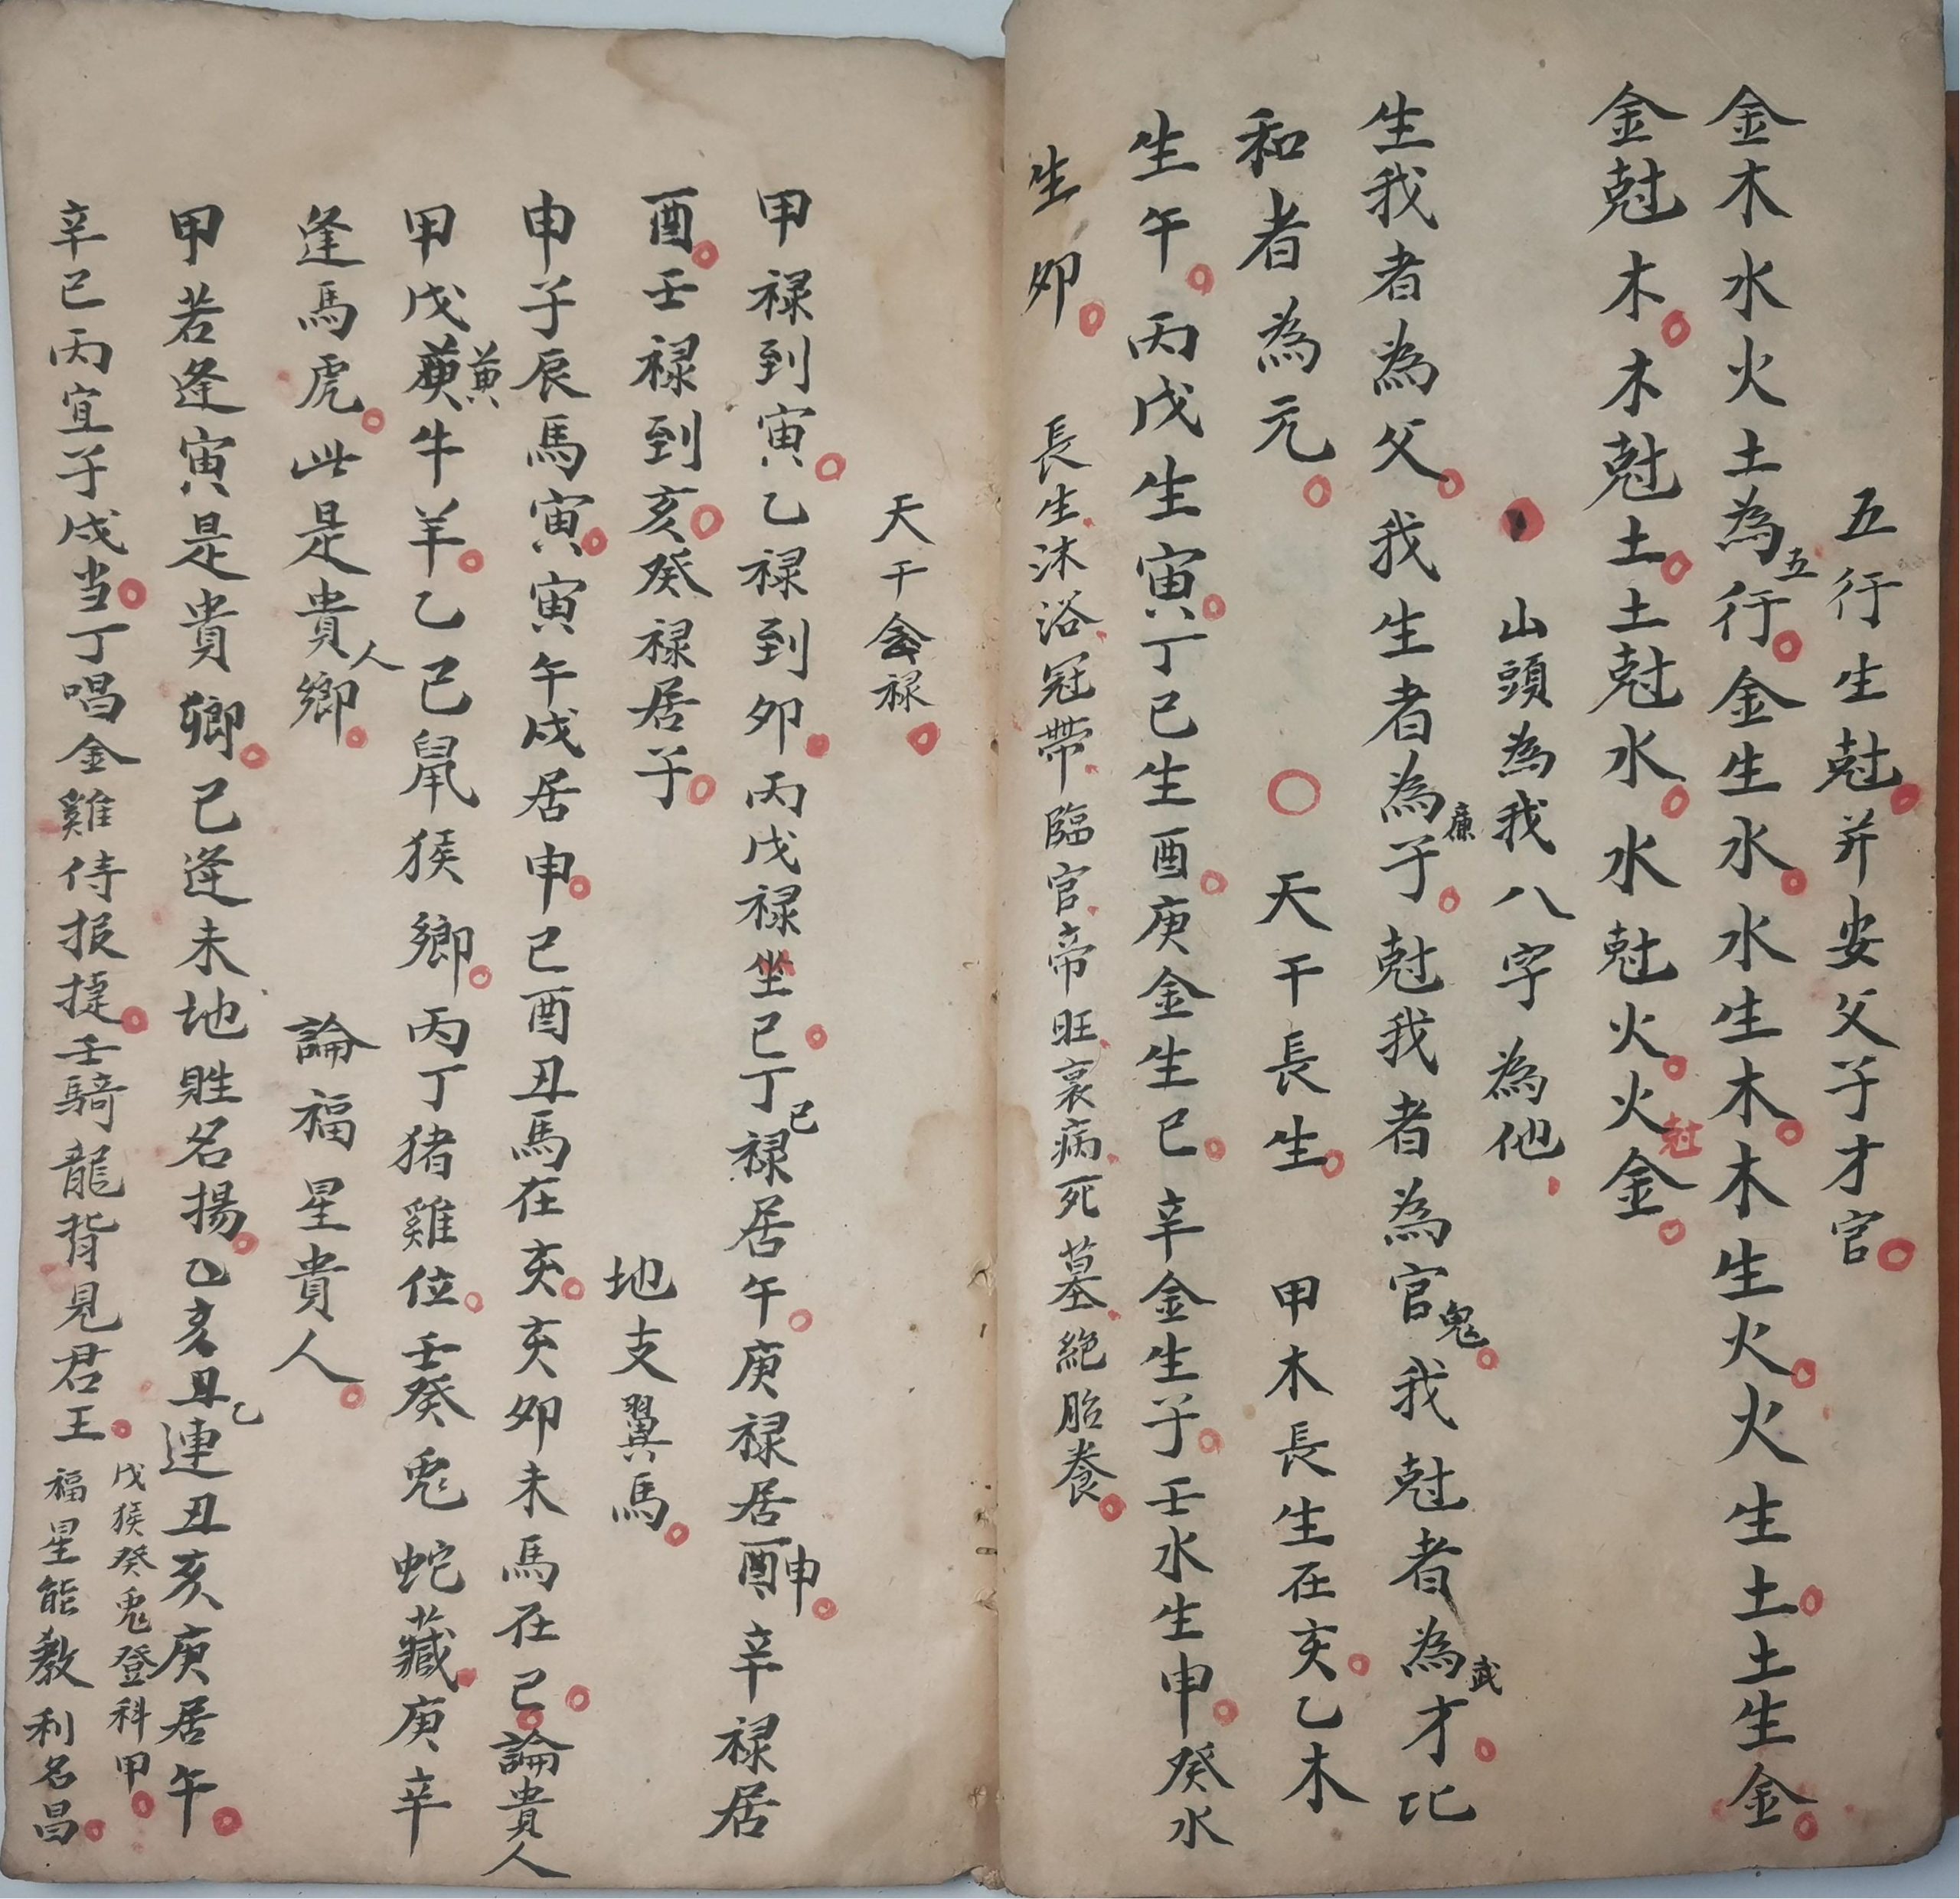 五行生尅并安父子才官
金木水火土為五行金生水水生木木生火火生土土生金
金尅木木尅土土尅水水尅火火尅金
山頭為我八字為他
生我者為父我生者為子廉尅我者為官鬼我尅者為才武比
和者為元 天干長生 甲木長生在亥乙木
生午丙戊生寅丁己生酉庚金生巳辛金生子壬水生申癸水
生卯 長生沐浴冠帶臨官帝旺衰病死墓絕胎養
天干禄
甲禄到寅乙禄到卯丙戊禄坐巳丁己禄居午庚禄居申辛禄居
酉壬禄到亥癸禄居子 地支翼馬
申子辰馬寅寅午戌居申巳酉丑馬在亥亥卯未馬在巳論貴人
甲戊兼黄牛羊乙己鼠猴鄉丙丁猪雞位壬癸兎蛇藏庚辛
逢馬虎此是貴人鄉 論福星貴人
甲若逢寅是貴鄉己逢未地姓名揚乙亥丑乙連丑亥庚居午
辛巳丙宜子戌当丁唱金雞侍报捷壬騎龍背見君王
戊猴癸兎登科甲
福星能教利名昌